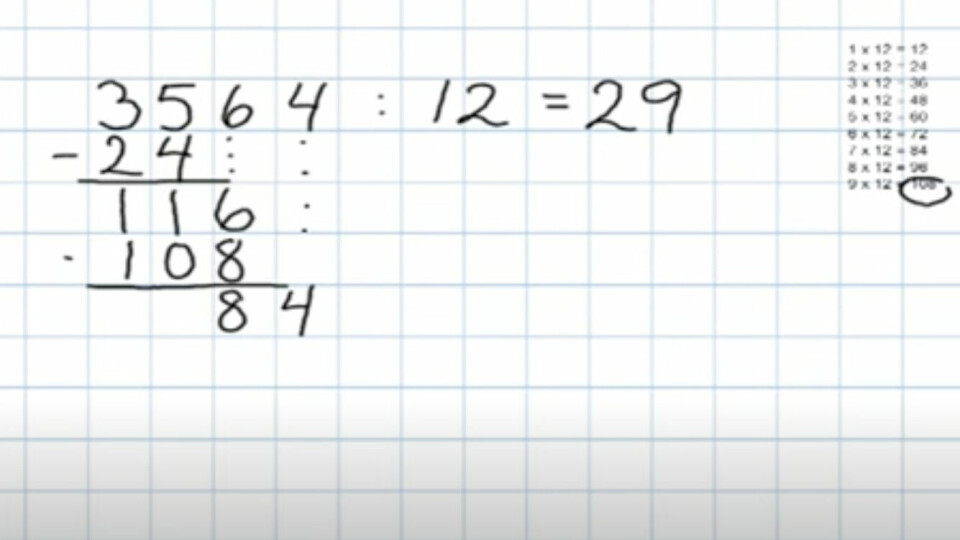 3564 : 12 = 29
- 24
116
- 108
84
1 x 12 = 12
2 x 12 - 24
3 x 12 - 36
4 x 12 - 48
5 x 12 - 60
6 x 12 = 72
7 x 12 = 84
8 x 12 = 96
9 x 12 = 108